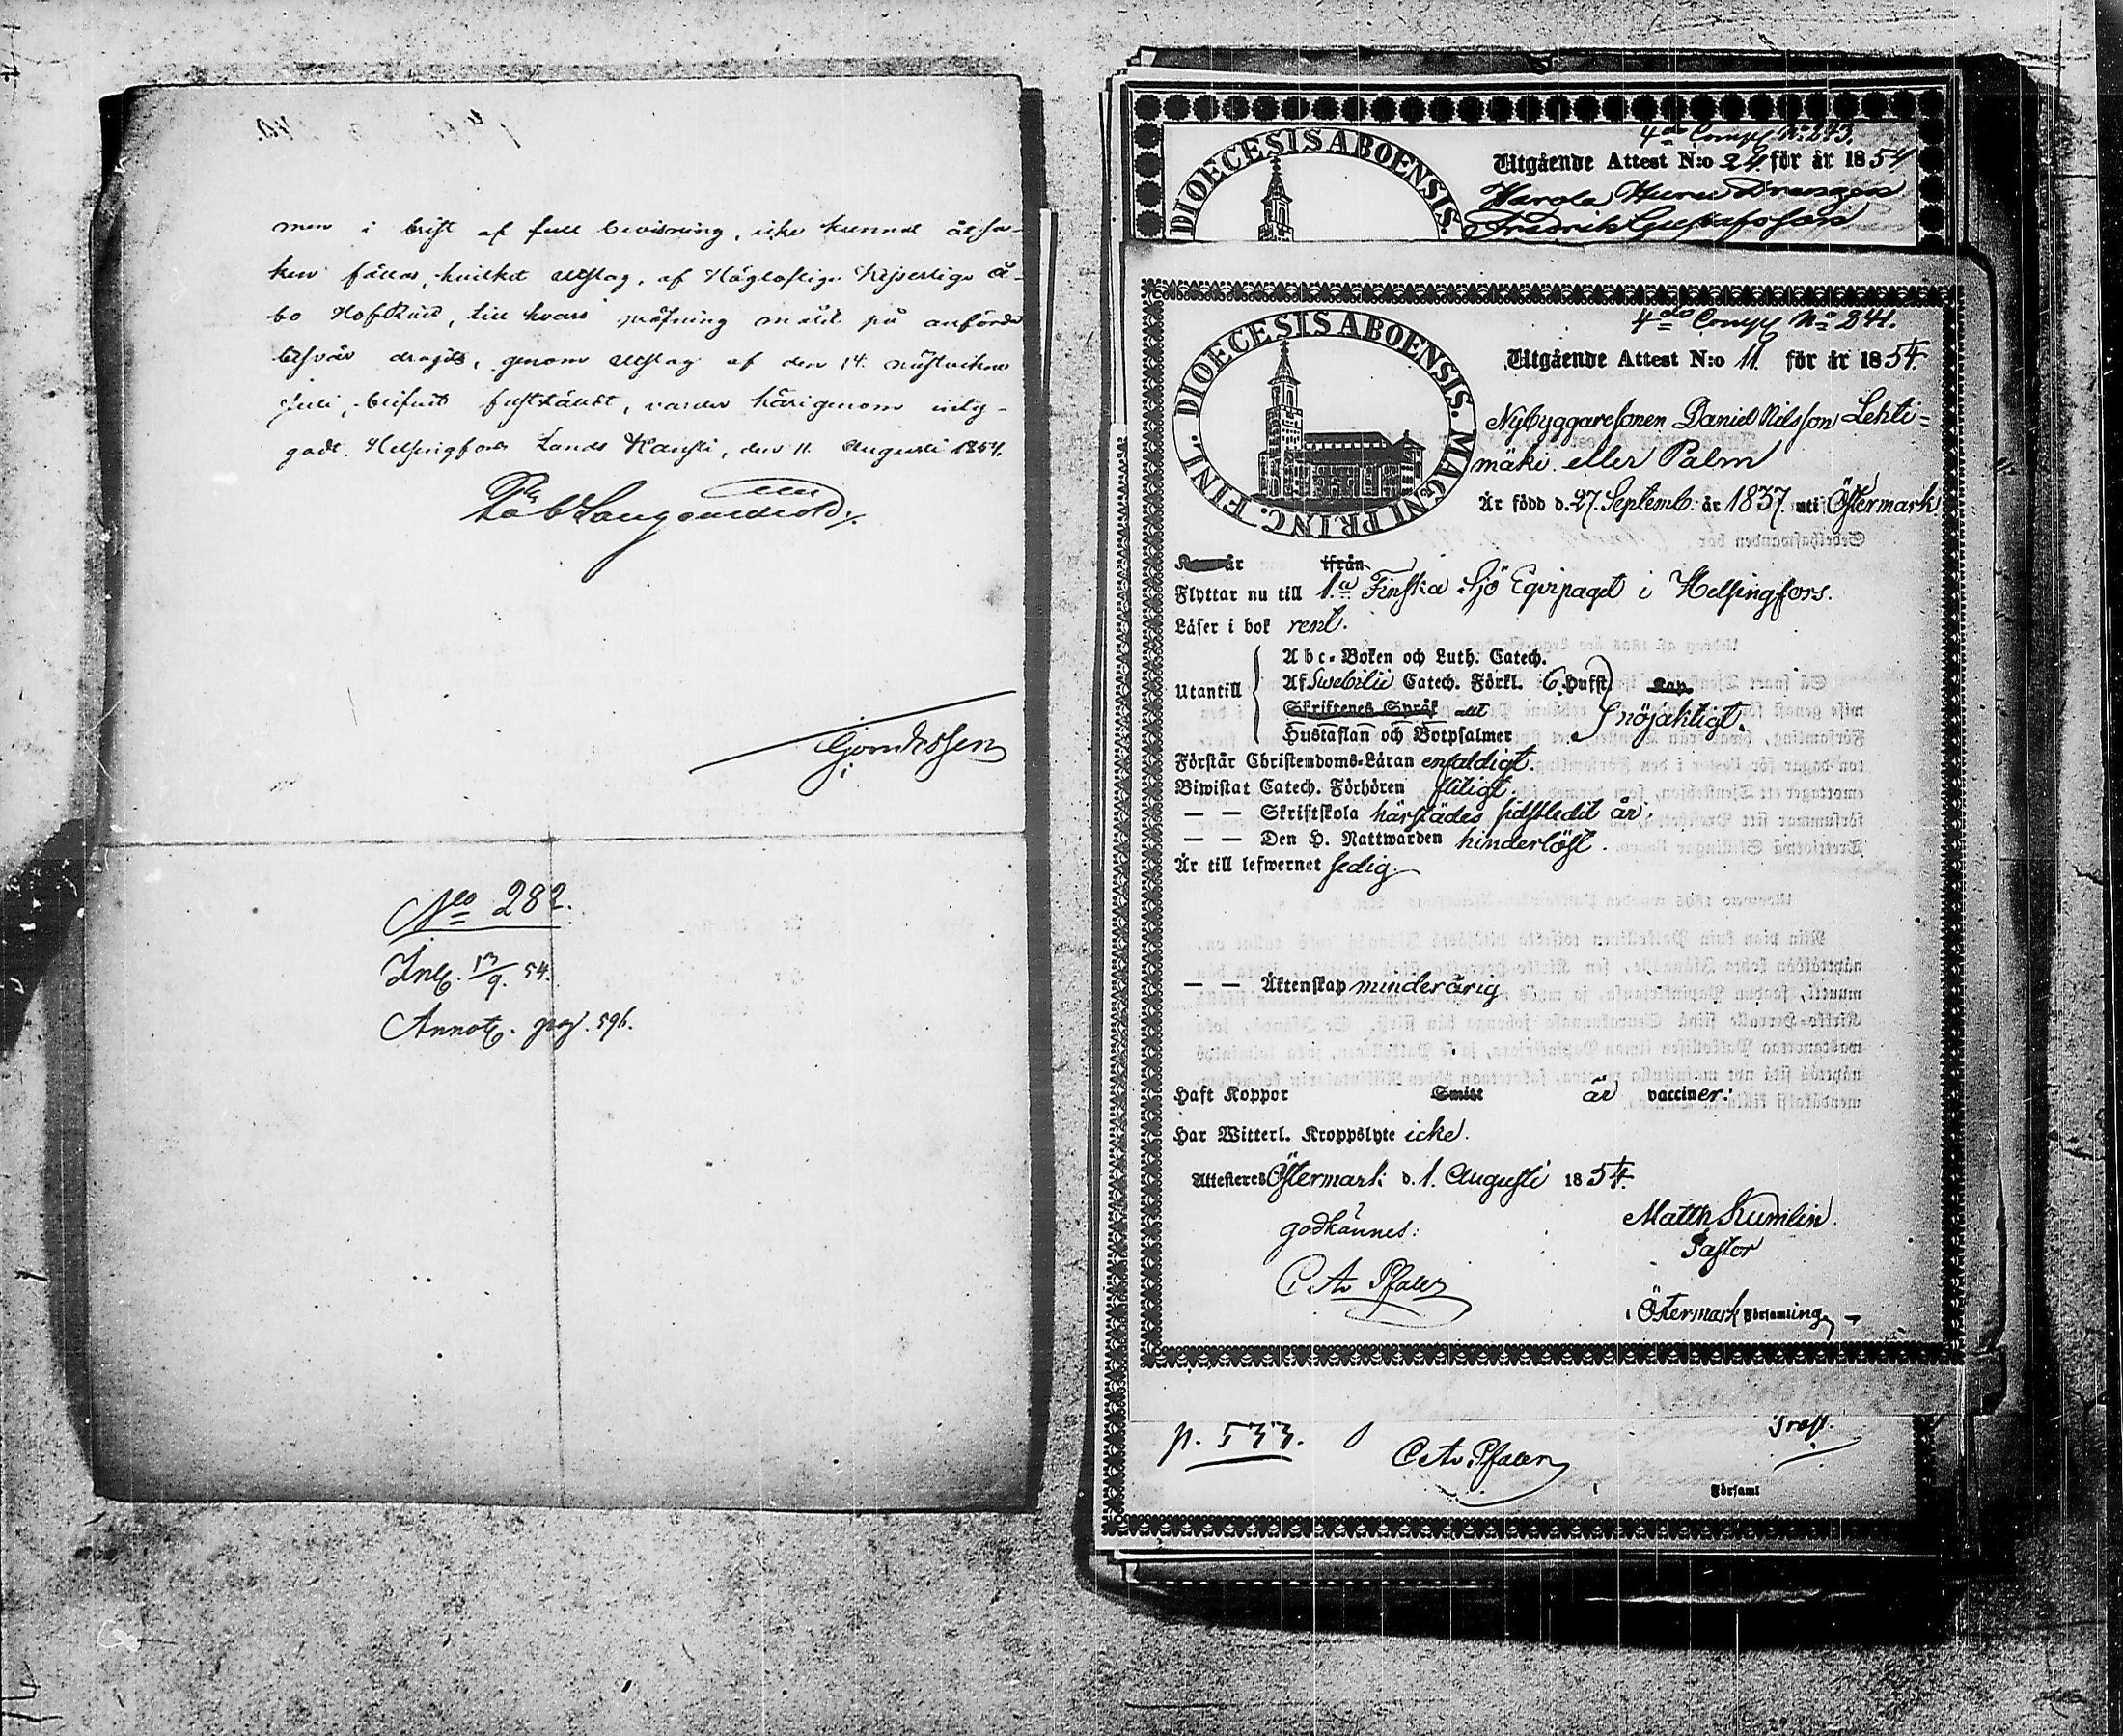 men i brist af full bevisning, icke kunnat åt sa-
ken fällas, hvilket utslag, af Höglofliga Kejserliga Å-
bo HofRätt, till hvars pröfning målet på anförde
besvär dragits, genom utslag af den 14. nästvikne
Juli, blifvit fastställdt, varder härigenom inty-
gadt. Helsingfors Lands Kansli, den 11 Augusti 1854.
No 282.
Inl. 13/9. 54.
Annot. pag. 596.
DIOECESIS ABOENSIS.
4do Comp No 273.
Utgående Attest N:o 24 för år 1854
DIOECESIS ABOENSIS. MAGNI PRINC. FINL.
4do Comp No 241.
Utgående Attest N:o 11. för år 1854.
Nybyggaresonen Daniel Nilsson Lehti-
mäki eller Palm
Är född d. 27. Septemb: år 1837. uti Östermark
ifrån
Flyttar nu till 1.a Finska Sjö Eqvipaget i Helsingfors.
Läser i bok rent.
Utantill
Abc-Boken och Luth. Catech.
Af Swebilii Catech. Förkl. 6. Hufst Kap.
Skriftenes Språk nöjaktigt.
Hustaflan och Botpsalmer
Förstår Christendoms-Läran enfaldigt.
Biwistat Catech. Förhören flitigt.
— — Skriftskola härstädes sistledit år.
— — Den H. Nattwarden hinderlöst.
Är till lefwernet sedig.
— — Äktenskap minderårig
Haft Koppor Smitt är vacciner:
Har Witterl. Kroppslyte icke.
Attesteres Östermark d. 1. Augusti 1854.
godkännes: Matth Kumlin.
Pastor
C Av Pfaler
i Östermark Församling
p. 533. C Av Pfaler
Församl